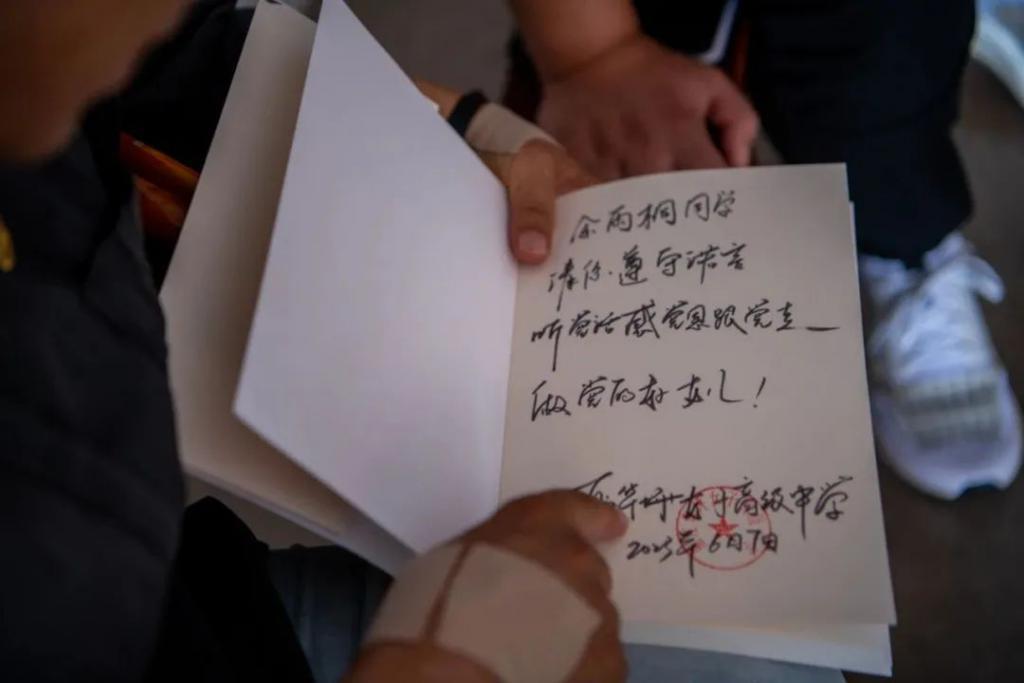 余雨桐同学
请你遵守诺言
听党话感党恩跟党走
做党的好女儿！
华州高级中学
2025年6月7日